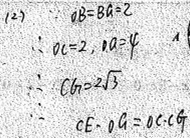 (2) ∵ OB=BG=2
∴ OC=2, OG=4
∴ CG=2√3
∴ CE·OG=OC·CG